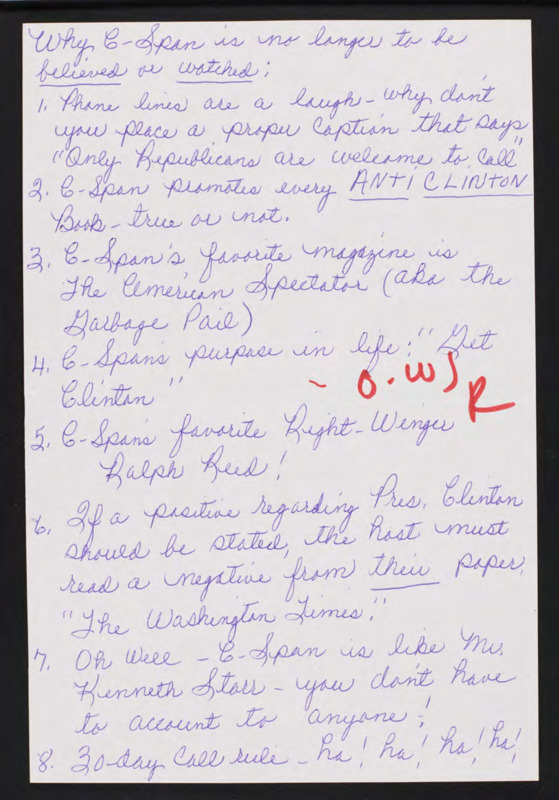 Why C-Span is no longer to be
believed or watched:
1. Phone lines are a laugh - why don't
you place a proper caption that says
"Only Republicans are welcome to call"
2. C-Span promotes every ANTI CLINTON
Book - true or not.
3. C-Span's favorite magazine is
The American Spectator (aka the
Garbage Pail)
4. C-Span's purpose in life: "Get
Clinton"
5. C-Span's favorite Right-Winger
Ralph Reed!
6. If a positive regarding Pres. Clinton
should be stated, the host must
read a negative from their paper,
"The Washington Times."
7. Oh Well - C-Span is like Mr.
Kenneth Starr - you don't have
to account to anyone!
8. 30-day Call rule - ha! ha! ha! ha!